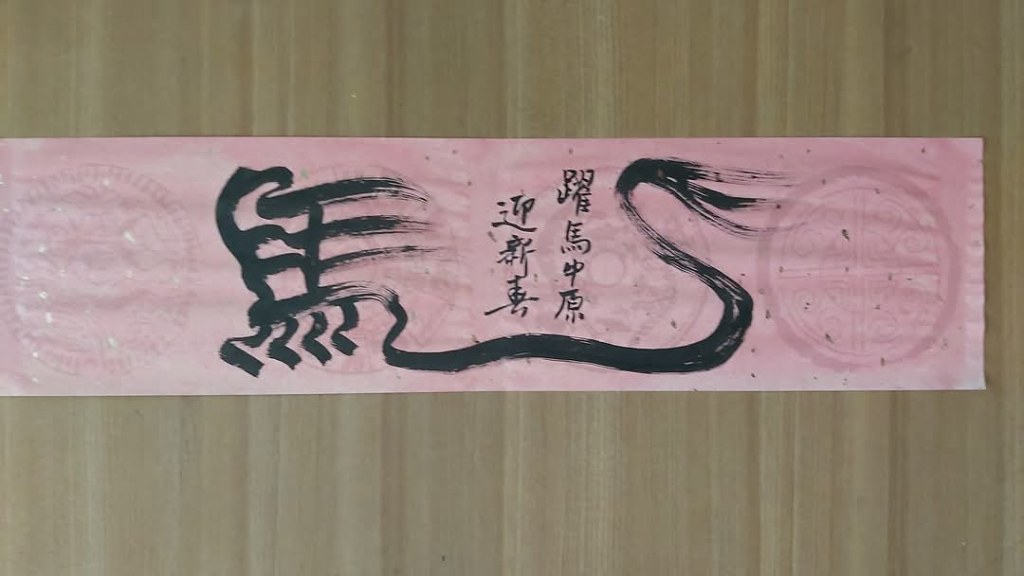 馬
躍馬中原
迎新春